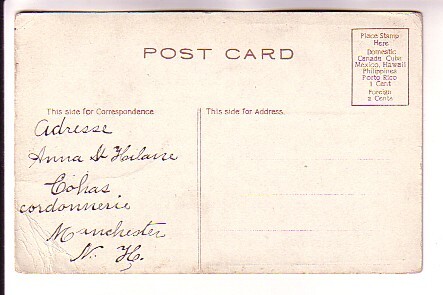 POST CARD
Place Stamp
Here
Domestic
Canada, Cuba
Mexico, Hawaii
Philippines
Porto Rico
1 Cent
Foreign
2 Cents
This side for Correspondence.
This side for Address.
Adresse
Anna St Hilaire
Cohas
cordonnerie
Manchester
N. H.